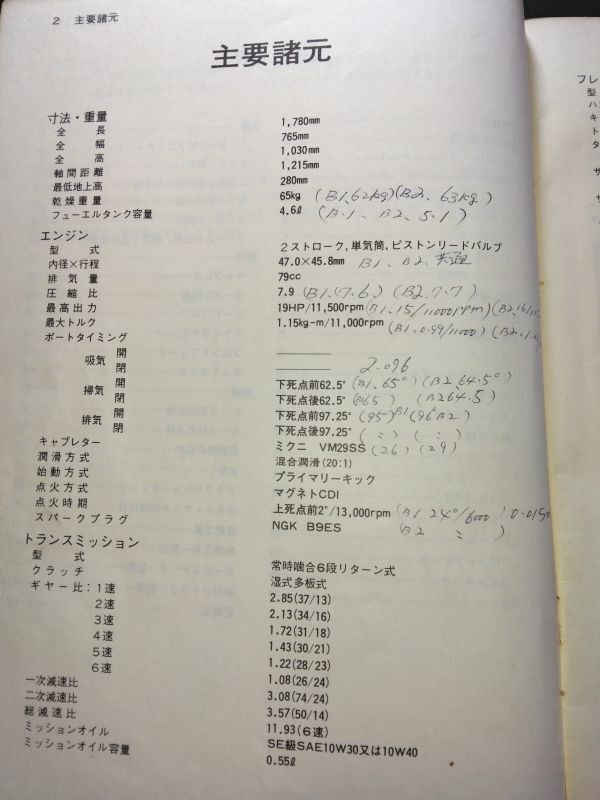 2 主要諸元
主要諸元
寸法・重量
全長 1,780mm
全幅 765mm
全高 1,030mm
軸間距離 1,215mm
最低地上高 280mm
乾燥重量 65kg (B1.62kg)(B2、63kg)
フューエルタンク容量 4.6ℓ (B.1、B2、5.1)
エンジン
型式 2ストローク,単気筒,ピストンリードバルブ
内径×行程 47.0×45.8mm B1、B2、共通
排気量 79cc
圧縮比 7.9 (B1.7.6) (B2.7.7)
最高出力 19HP/11,500rpm (B1.15/11000rpm)(B2.16/
最大トルク 1.15kg-m/11,000rpm (B1.0.99/11000) (B2.1.
ポートタイミング
吸気 開
閉 2.096
掃気 開 下死点前62.5° (B1.65°) (B2.64.5°)
閉 下死点後62.5° (B65) (B264.5)
排気 開 下死点前97.25° (95)B1 (96°B2)
閉 下死点後97.25° (〃) (〃)
キャブレター ミクニ VM29SS (26) (29)
潤滑方式 混合潤滑(20:1)
始動方式 プライマリーキック
点火方式 マグネトCDI
点火時期 上死点前2°/13,000rpm (B1.24°/6000) 0.015
スパークプラグ NGK B9ES (B2 〃 )
トランスミッション
型式 常時噛合6段リターン式
クラッチ 湿式多板式
ギヤー比:1速 2.85(37/13)
2速 2.13(34/16)
3速 1.72(31/18)
4速 1.43(30/21)
5速 1.22(28/23)
6速 1.08(26/24)
一次減速比 3.08(74/24)
二次減速比 3.57(50/14)
総減速比 11.93(6速)
ミッションオイル SE級SAE10W30又は10W40
ミッションオイル容量 0.55ℓ
フレ
型
ハン
キ
ト
タ
サ
サ